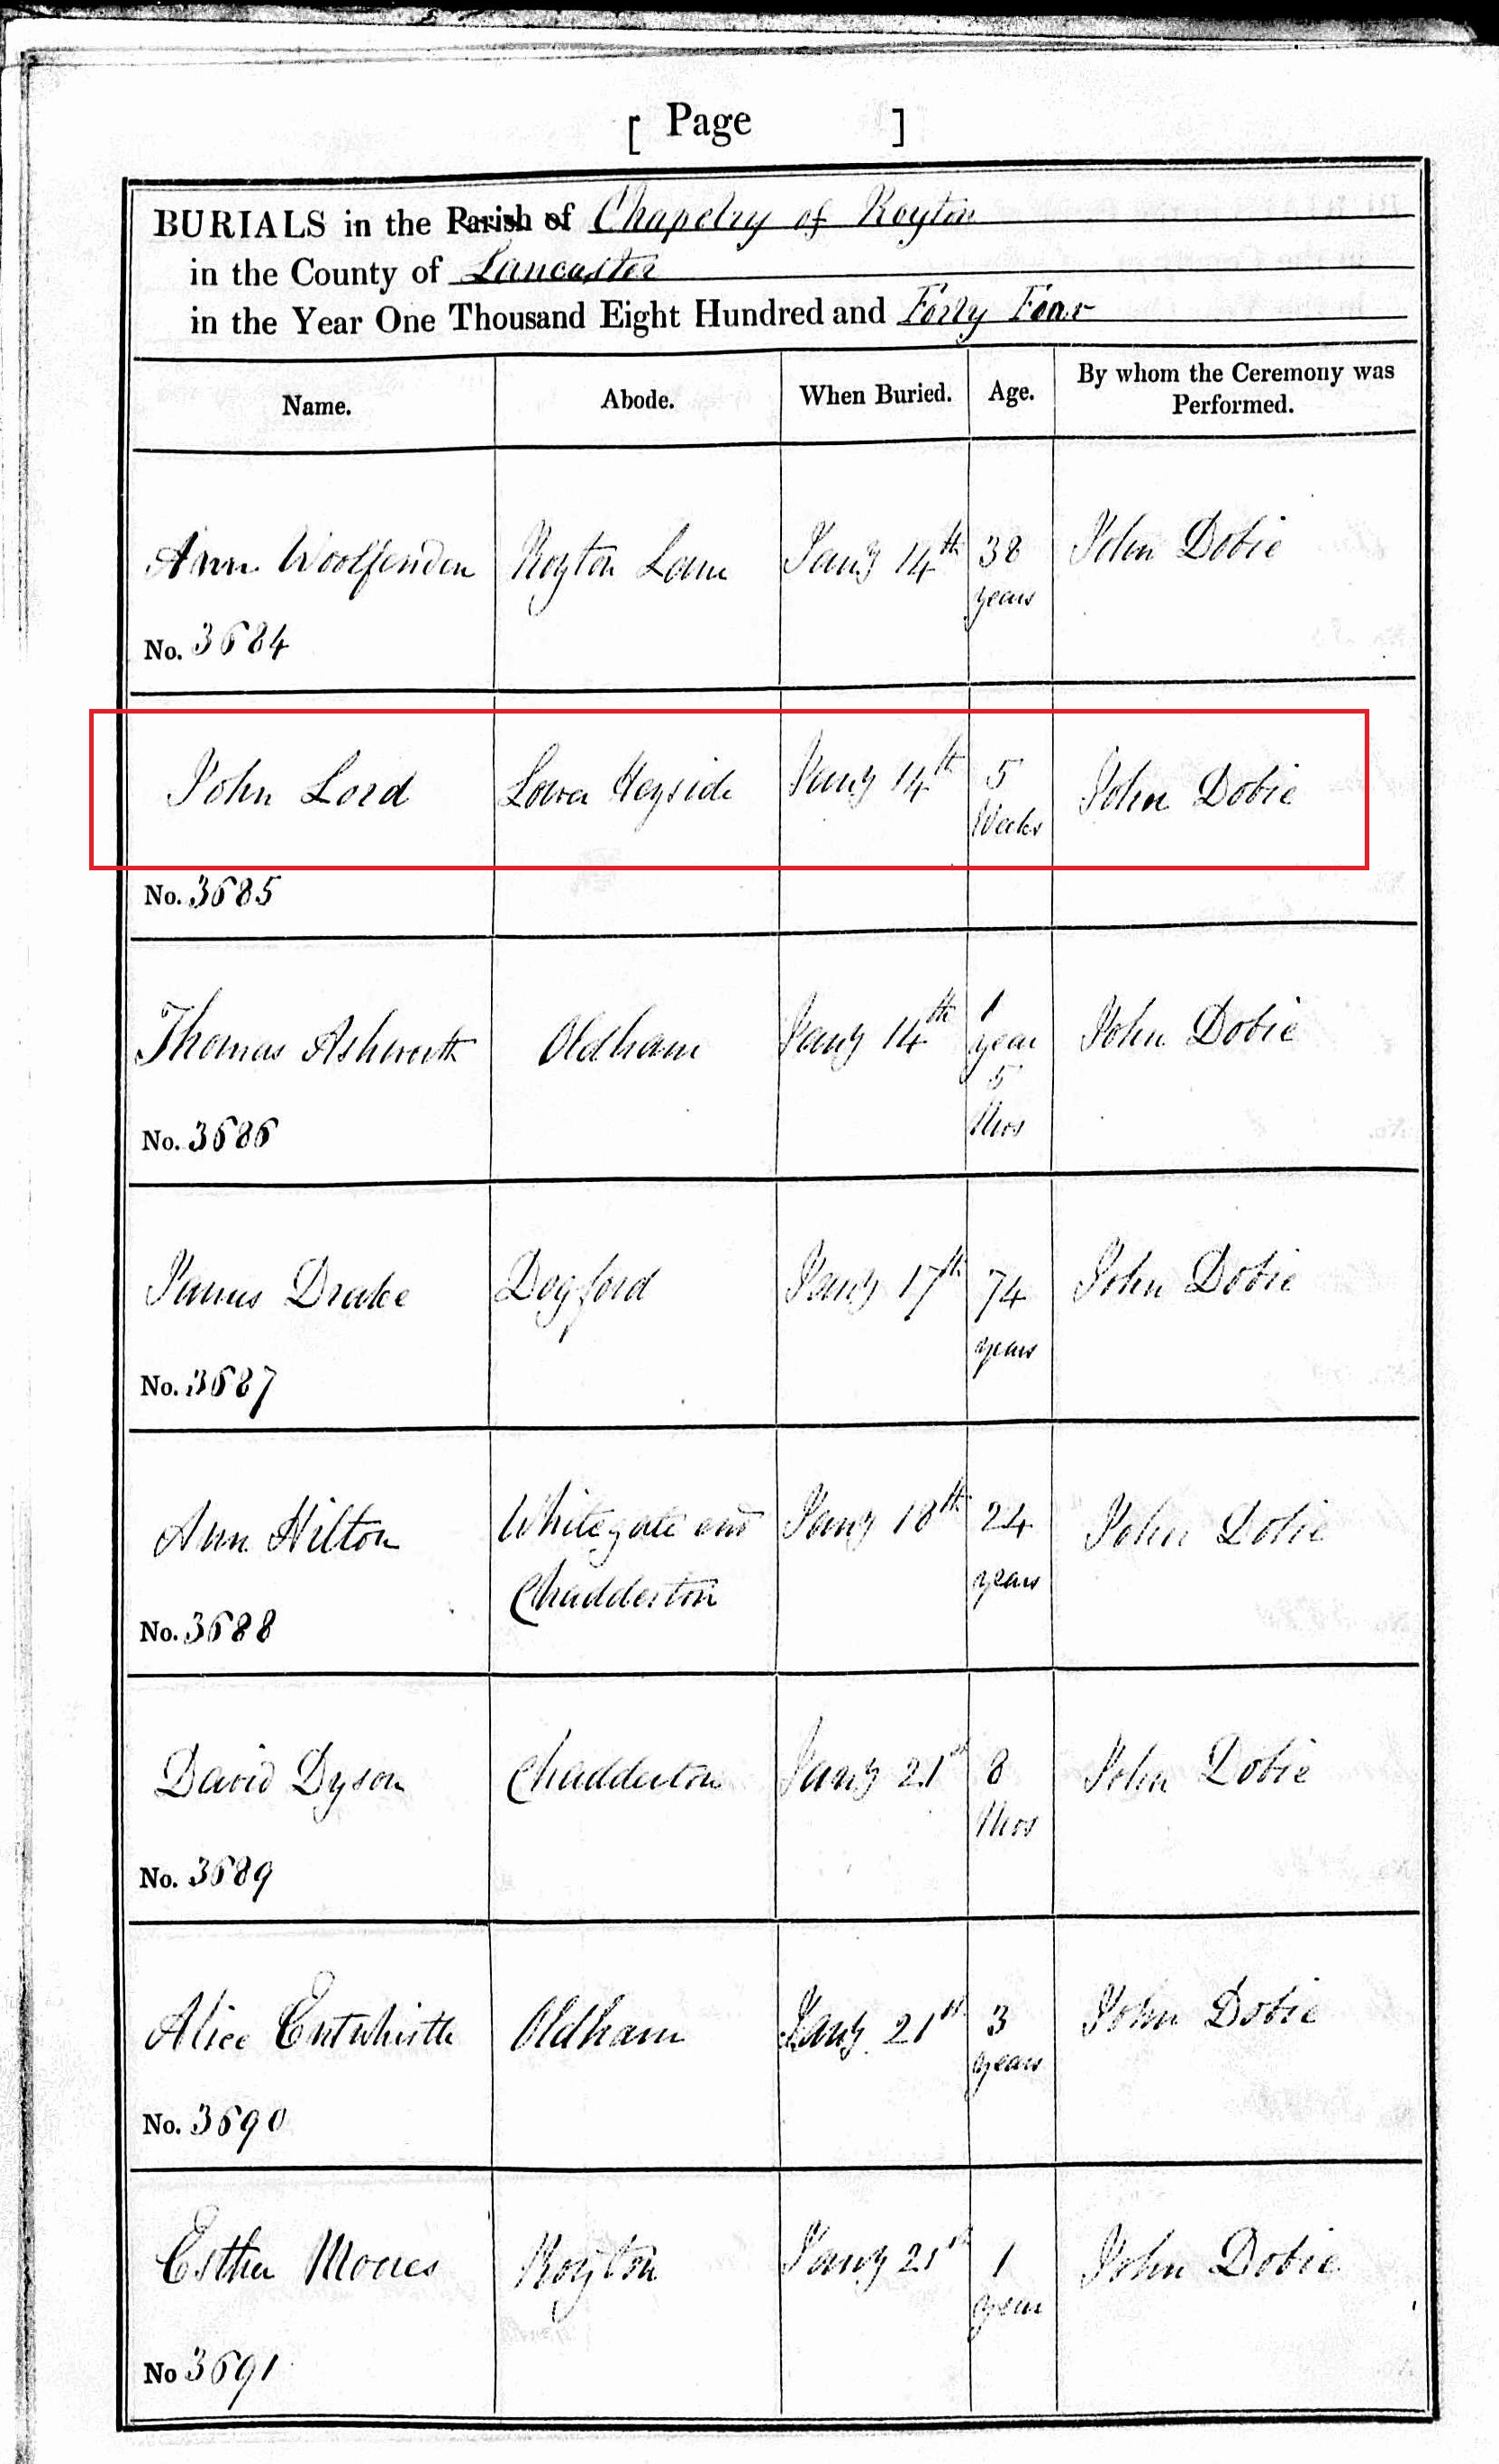 [ Page ]
BURIALS in the Parish of Chapelry of Royton
in the County of Lancaster
in the Year One Thousand Eight Hundred and Forty Four
Name. Abode. When Buried. Age. By whom the Ceremony was Performed.
Ann Woolfenden Royton Lane Jany 14th 38 years John Dobie
No. 3684
John Lord Lower Heyside Jany 14th 5 Weeks John Dobie
No. 3685
Thomas Ashworth Oldham Jany 14th 1 year 5 Mos John Dobie
No. 3686
James Drake Dogford Jany 17th 74 years John Dobie
No. 3687
Ann Hilton Whitegate end Chadderton Jany 18th 24 years John Dobie
No. 3688
David Dyson Chadderton Jany 21st 8 Mos John Dobie
No. 3689
Alice Entwhistle Oldham Jany 21st 3 years John Dobie
No. 3690
Esther Royton Jany 21st 1 year John Dobie
No 3691